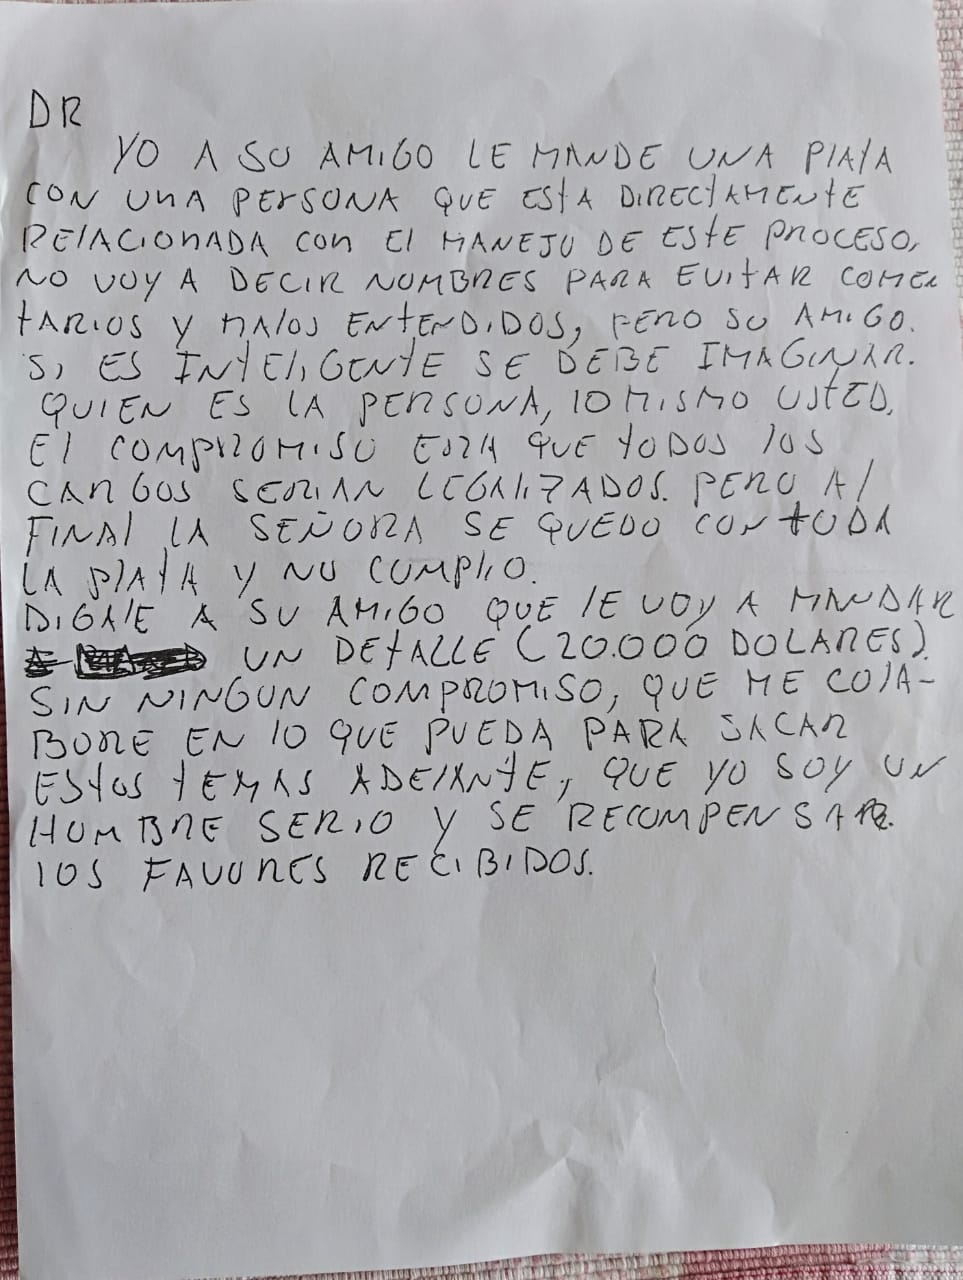 DR
YO A SU AMIGO LE MANDE UNA PLATA
CON UNA PERSONA QUE ESTA DIRECTAMENTE
RELACIONADA CON EL MANEJO DE ESTE PROCESO,
NO VOY A DECIR NOMBRES PARA EVITAR COMEN
TARIOS Y MALOS ENTENDIDOS, PERO SU AMIGO.
SI ES INTELIGENTE SE DEBE IMAGINAR.
QUIEN ES LA PERSONA, LO MISMO USTED,
EL COMPROMISO ERA QUE TODOS LOS
CARGOS SERIAN LEGALIZADOS. PERO AL
FINAL LA SEÑORA SE QUEDO CON TODA
LA PLATA Y NO CUMPLIO.
DIGALE A SU AMIGO QUE LE VOY A MANDAR
UN DETALLE (20.000 DOLARES).
SIN NINGUN COMPROMISO, QUE ME COLA-
BORE EN LO QUE PUEDA PARA SACAR
ESTOS TEMAS ADELANTE, QUE YO SOY UN
HOMBRE SERIO Y SE RECOMPENSAR.
LOS FAVORES RECIBIDOS.